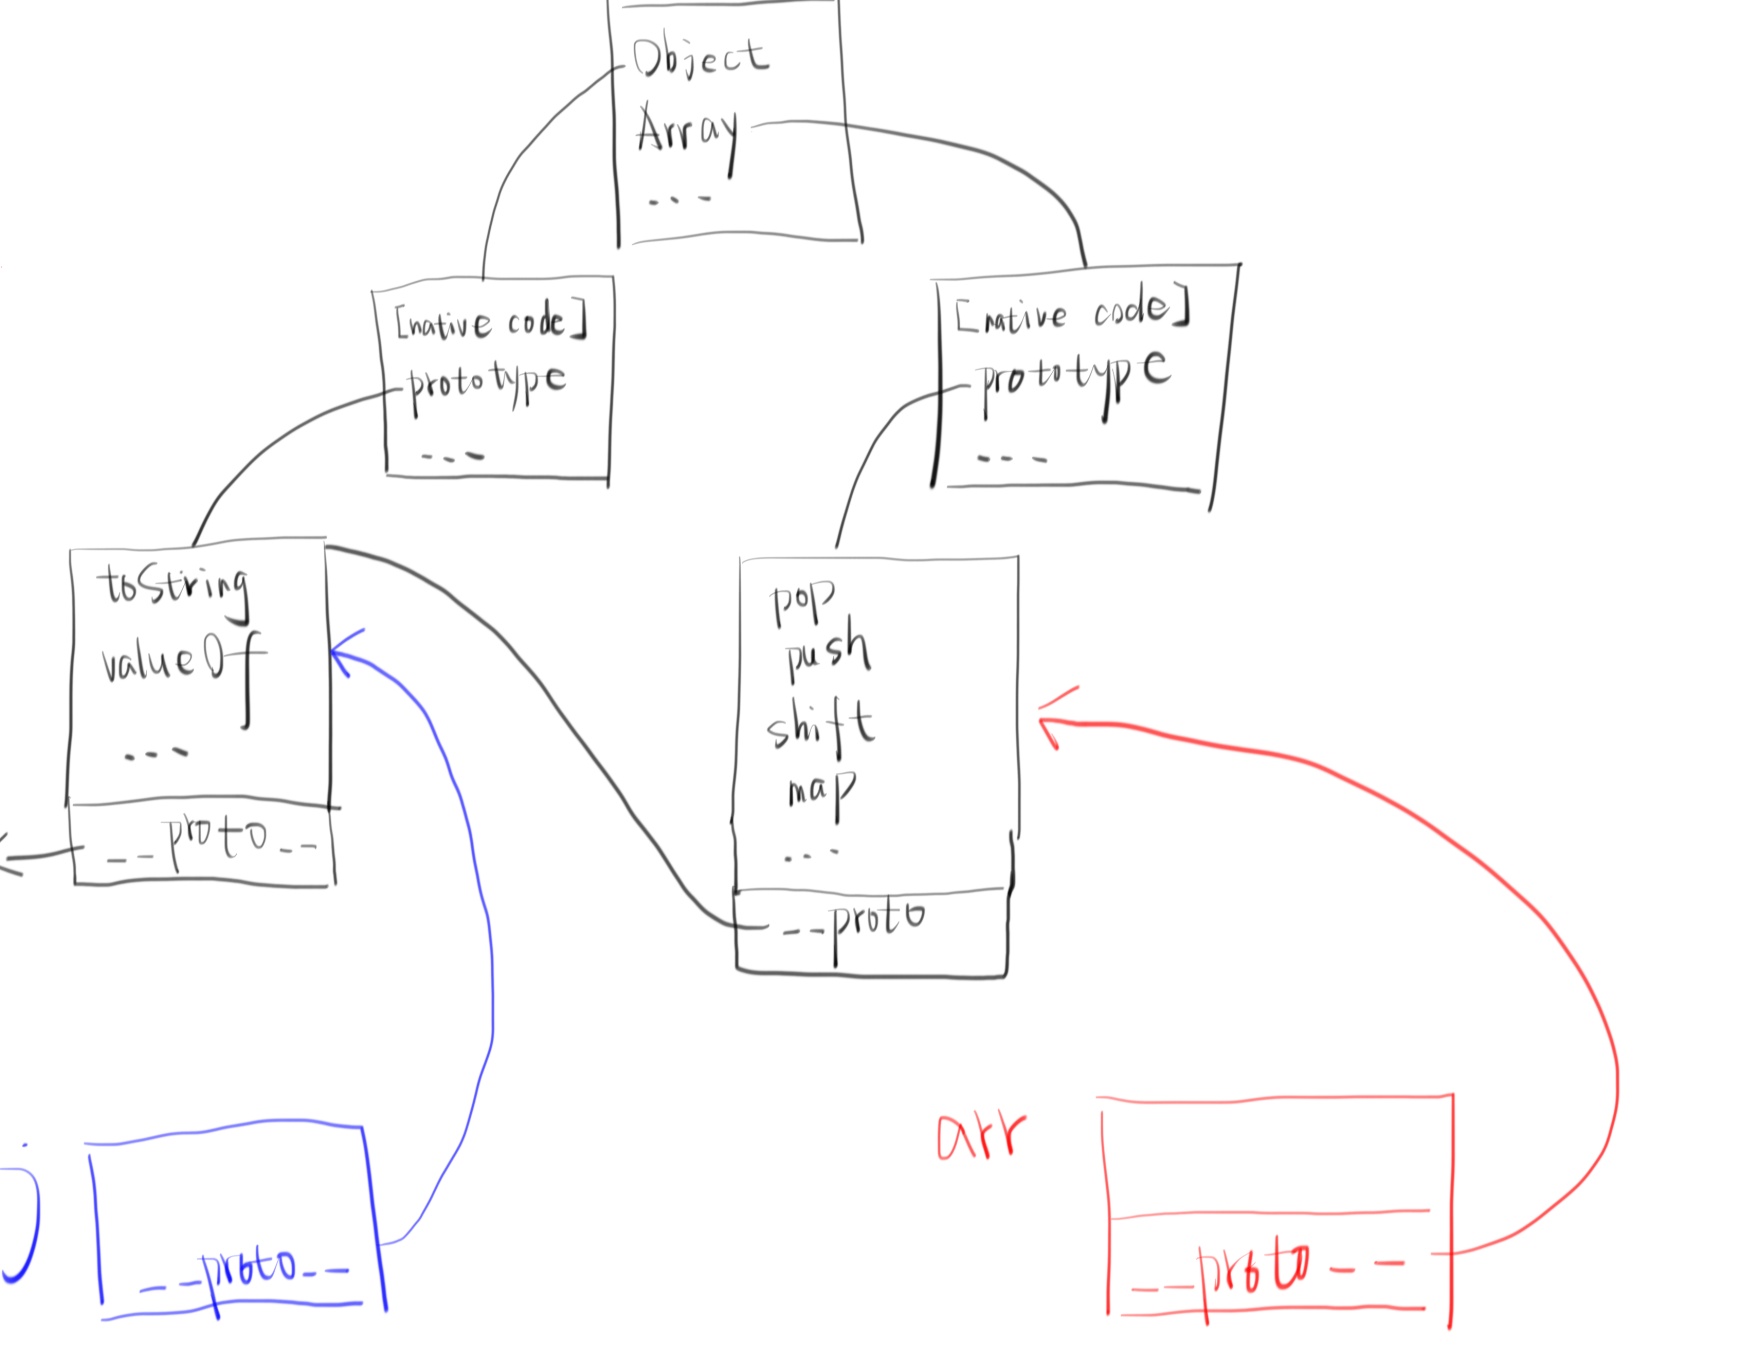 Object
Array
...
[native code]
prototype
---
[native code]
prototype
---
toString
valueOf
...
__proto__
pop
push
shift
map
...
__proto
j
__proto__
arr
__proto__